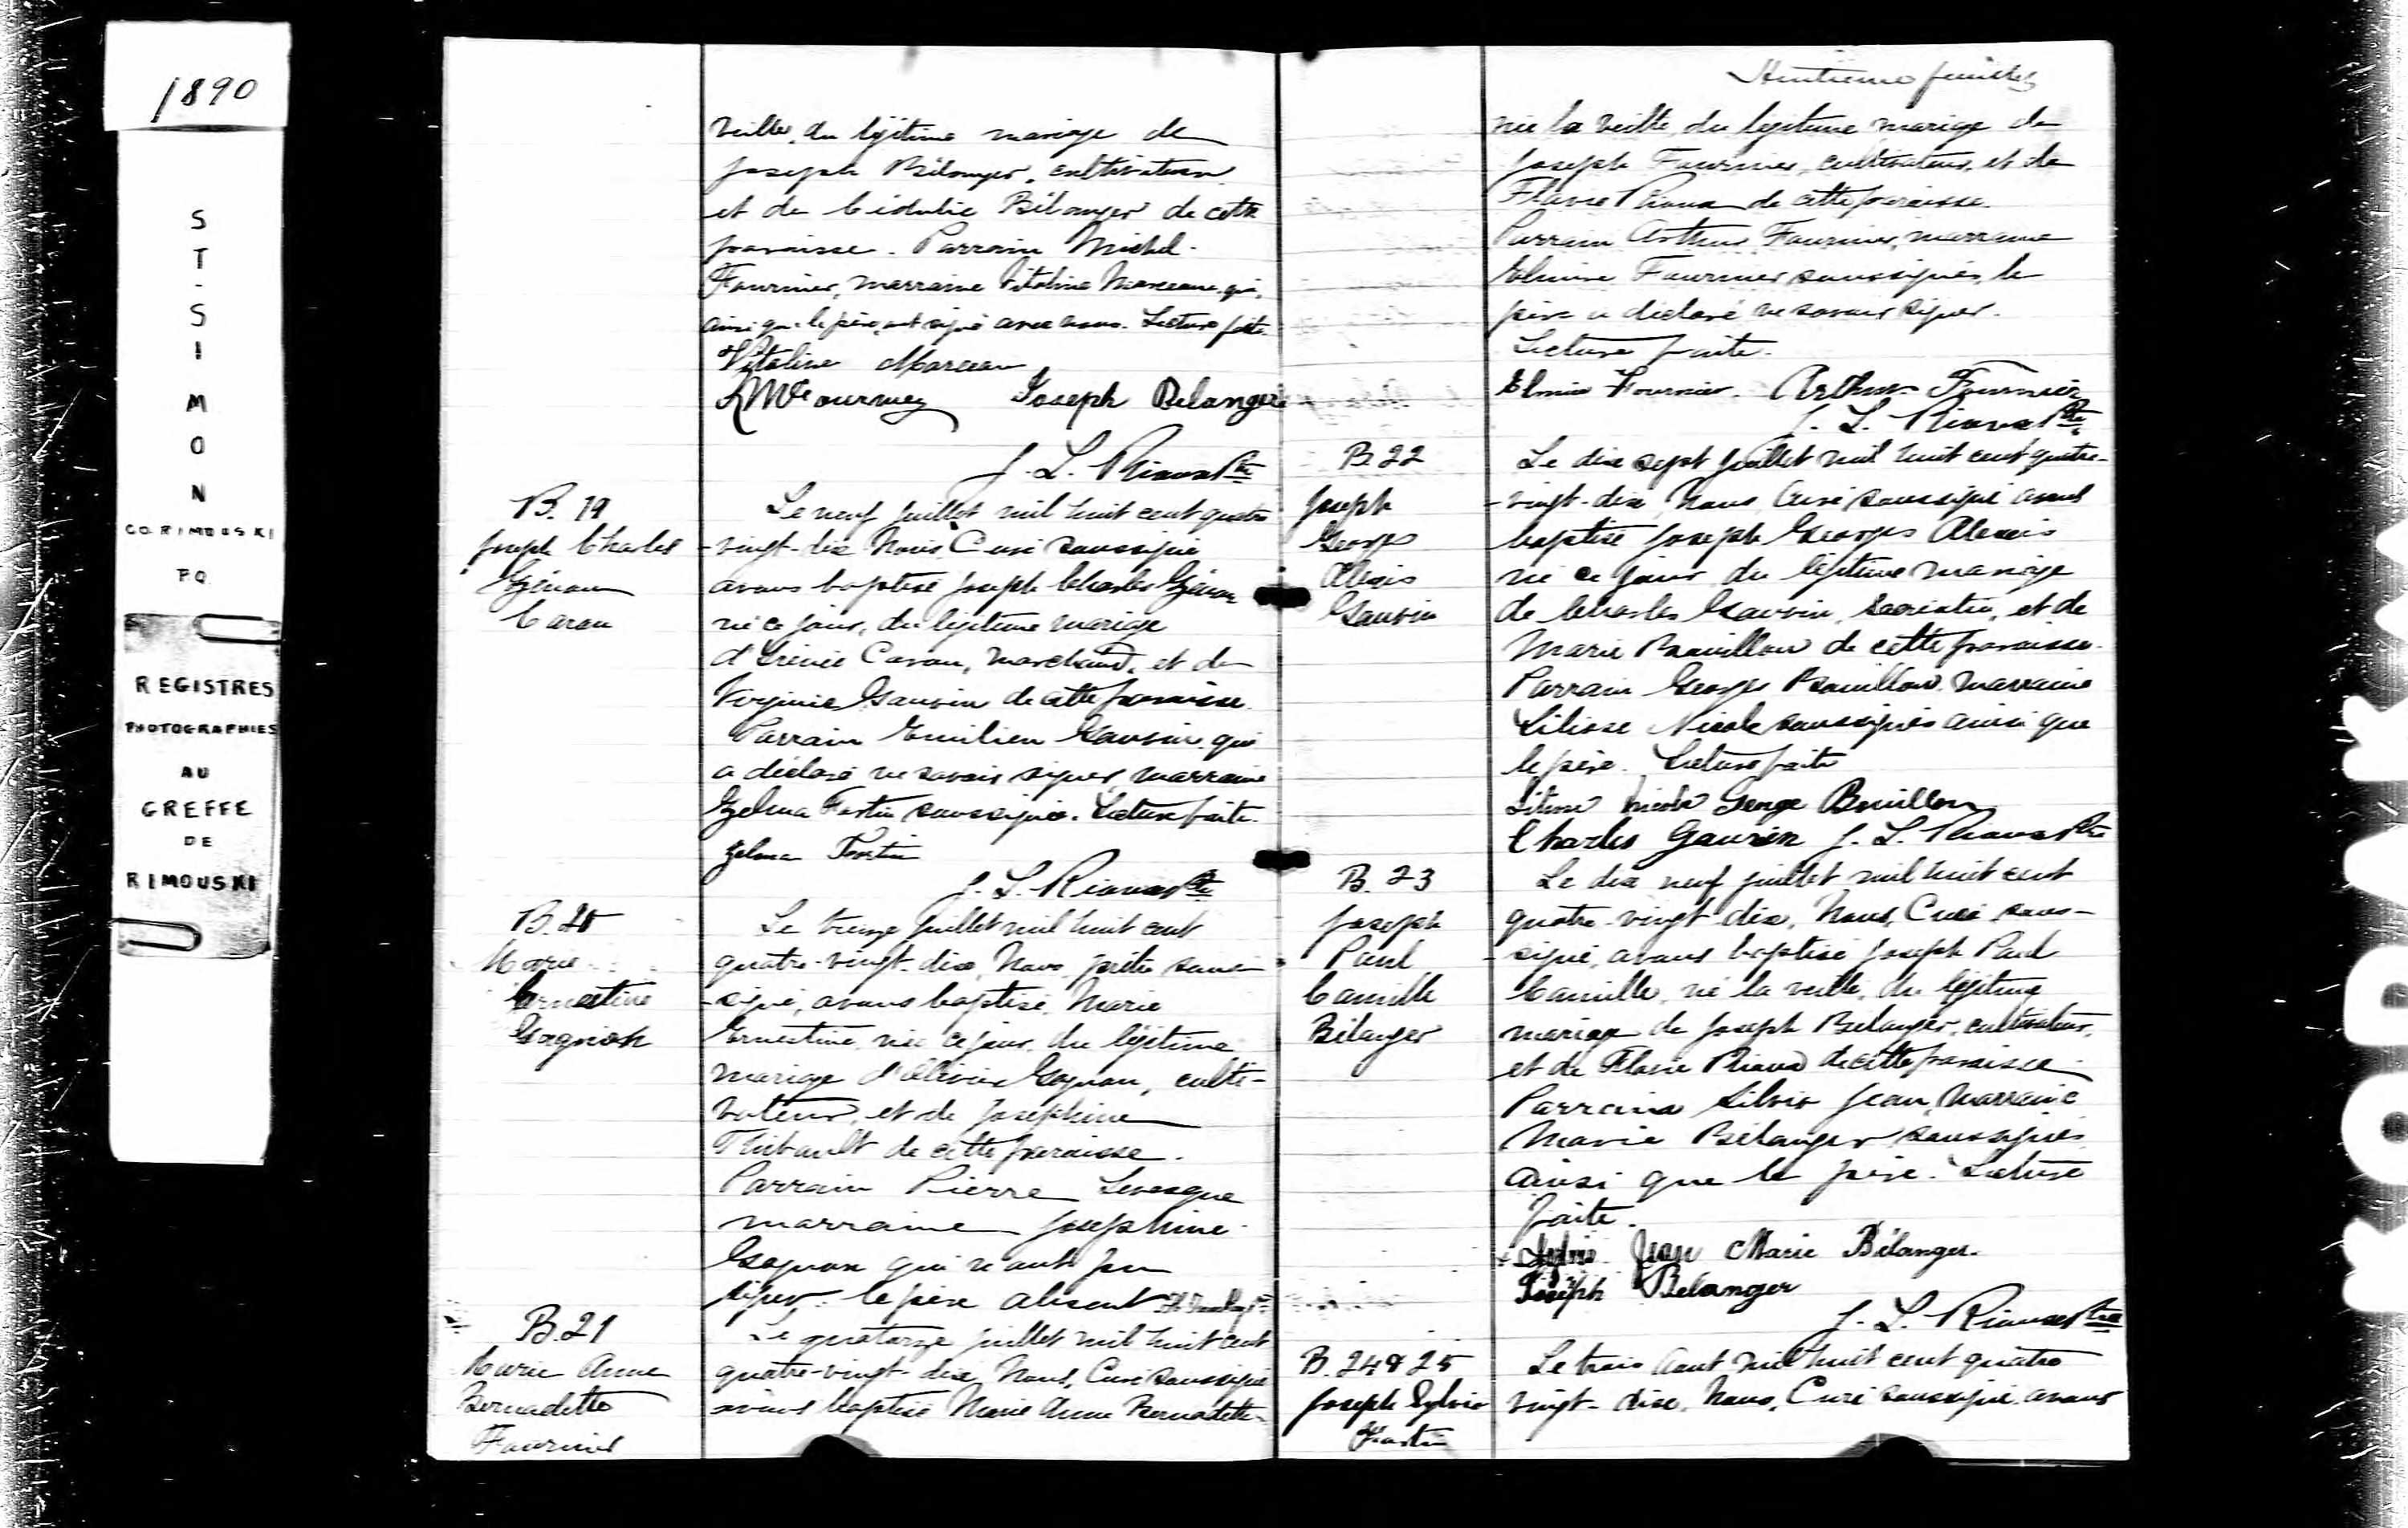 1890
ST-SIMON
CO. RIMOUSKI
P.Q.
REGISTRES
PHOTOGRAPHIES
AU
GREFFE
DE
RIMOUSKI
veille, du légitime mariage de
Joseph Bélanger, cultivateur
et de Bélanger de cette
paroisse. Parrain Michel
Fournier, marraine Vitaline Marceau qui,
ainsi que le père, ont signé avec nous. Lecture faite.
Vitaline Marceau
Joseph Belanger
J. L. Rioux Ptre
B. 19
Joseph Charles
Caron
Le neuf juillet mil huit cent quatre
-vingt-dix Nous Curé soussigné
avons baptisé Joseph Charles
né ce jour, du légitime mariage
d'Irénée Caron, marchand, et de
Virginie Gauvin de cette paroisse.
Parrain Emilien Gauvin qui
a déclaré ne savoir signer, marraine
Zelma Fortin soussignée. Lecture faite.
Zelma Fortin
J. L. Rioux Ptre
B. 20
Marie
Ernestine
Gagnon
Le treize juillet mil huit cent
quatre-vingt-dix, Nous, prêtre sous-
-signé, avons baptisé, Marie
Ernestine, née ce jour, du légitime
mariage d'Olivier Gagnon, culti-
vateur, et de Josephine
Thibault de cette paroisse.
Parrain Pierre Levesque
marraine Josephine
Gagnon qui n'ont pu
signer: le père absent
B. 21
Marie Anne
Bernadette
Fournier
Le quatorze juillet mil huit cent
quatre-vingt-dix, Nous, Curé soussigné
avons baptisé Marie Anne Bernadette
Huitième feuillet
née la veille, du légitime mariage de
Joseph Fournier, cultivateur, et de
Flavie Rioux de cette paroisse.
Parrain Arthur Fournier, marraine
Elmire Fournier soussignés, le
père a déclaré ne savoir signer.
Lecture faite.
Elmire Fournier. Arthur Fournier
J. L. Rioux Ptre
B. 22
Joseph
George
Alexis
Gauvin
Le dix sept juillet mil huit cent quatre-
-vingt-dix, Nous, Curé soussigné avons
baptisé Joseph Georges Alexis
né ce jour, du légitime mariage
de Charles Gauvin, sacristin, et de
Marie Bouillon de cette paroisse.
Parrain Georges Bouillon, marraine
Nicole soussignés ainsi que
le père. Lecture faite
Nicole George Bouillon
Charles Gauvin J. L. Rioux Ptre
B. 23
Joseph
Paul
Camille
Bélanger
Le dix neuf juillet mil huit cent
quatre-vingt dix, Nous, Curé sous-
-signé, avons baptisé Joseph Paul
Camille, né la veille, du légitime
mariage de Joseph Belanger, cultivateur,
et de Flavie Rioux de cette paroisse
Parrain Silvio Jean, marraine
Marie Bélanger soussignés
ainsi que le père. Lecture
faite.
Sylvio Jean Marie Bélanger.
Joseph Belanger
J. L. Rioux Ptre
B. 24 & 25
Joseph Sylvio
Fortin
Le trois Août mil huit cent quatre
vingt-dix, Nous, Curé soussigné, avons
KODAK